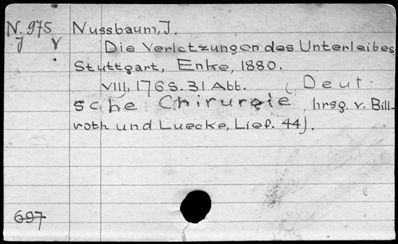 N. 975 Nussbaum, J.
J V Die Verletzungen des Unterleibes
Stuttgart, Enke, 1880.
VIII, 176 S. 31 Abb. (Deut-
sche Chirurgie, hrsg. v. Bill-
roth und Luecke, Lief. 44).
697